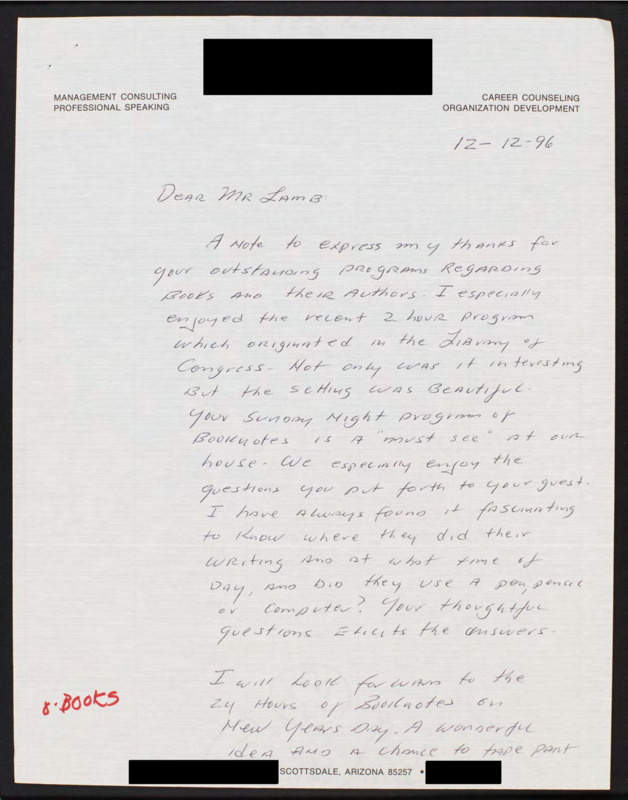 MANAGEMENT CONSULTING
PROFESSIONAL SPEAKING
CAREER COUNSELING
ORGANIZATION DEVELOPMENT
12-12-96
Dear Mr Lamb:
A note to express my thanks for
your outstanding programs regarding
Books and their Authors. I especially
enjoyed the recent 2 hour program
which originated in the Library of
Congress- Not only was it interesting
But the setting was Beautiful.
Your Sunday Night program of
Booknotes is a "must see" at our
house. We especially enjoy the
questions you put forth to your guest.
I have always found it fascinating
to know where they did their
writing and at what time of
Day, and did they use a pen, pencil
or computer? Your thoughtful
questions Elicits the answers.
I will look forward to the
24 Hours of Booknotes on
New Years Day. A wonderful
idea and a chance to tape part
8-BOOKS
SCOTTSDALE, ARIZONA 85257 •